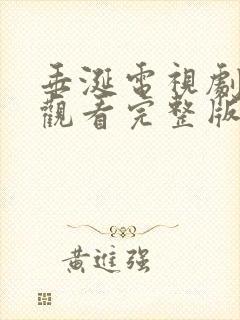 垂涎電視劇
觀看完整版
黃進强